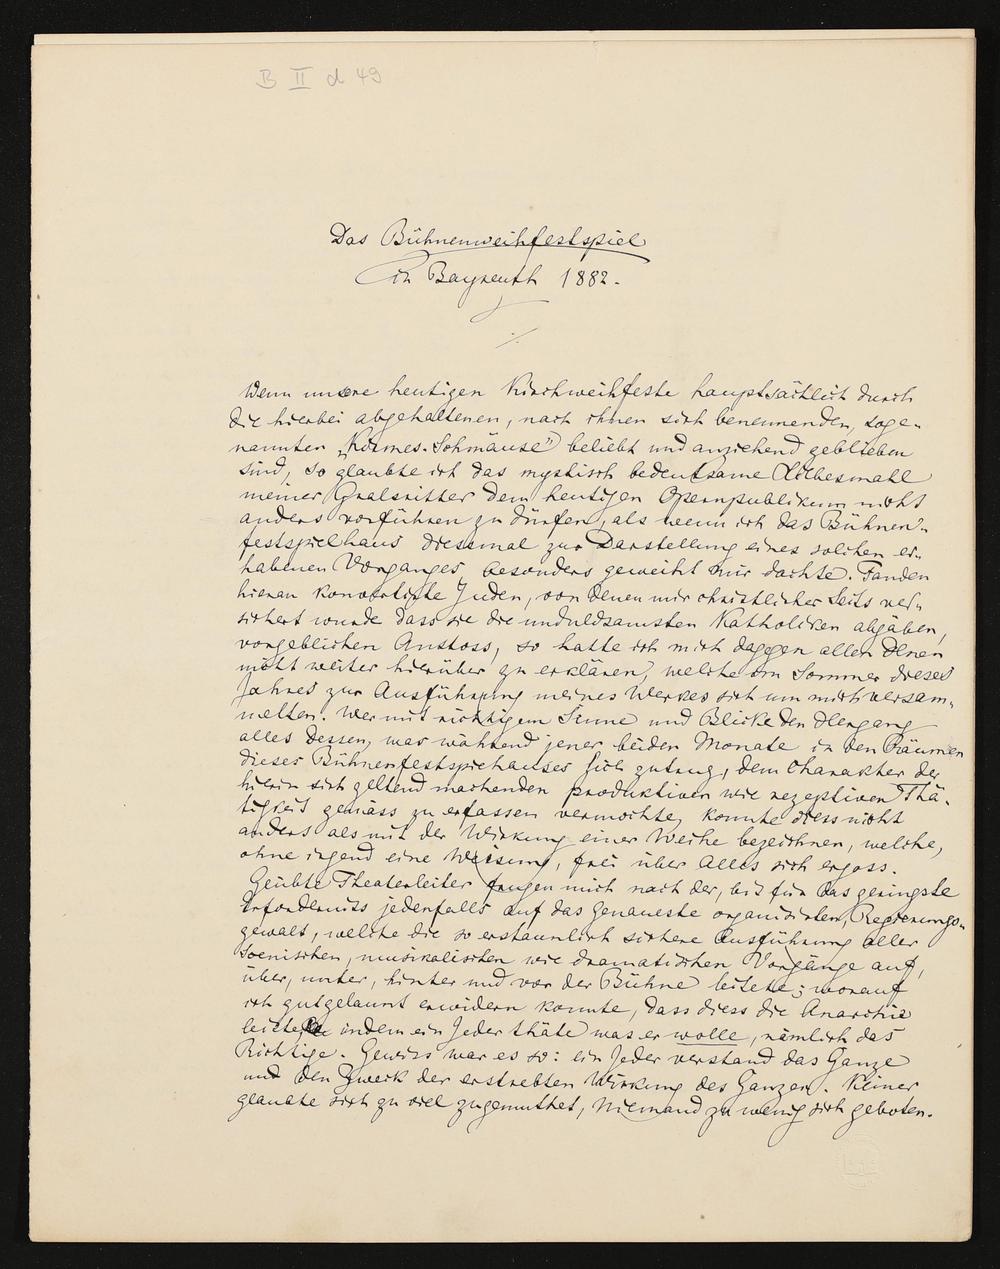 B II d 49
Das Bühnenweihfestspiel
in Bayreuth 1882.
Wenn unsere heutigen Kirchweihfeste hauptsächlich durch
die hierbei abgehaltenen, nach ihnen sich benennenden, soge-
nannten „Kirmes-Schmäuse" beliebt und anziehend geblieben
sind, so glaubte ich das mystisch bedeutsame Liebesmahl
meiner Gralsritter dem heutigen Opernpublikum nicht
anders vorführen zu dürfen, als wenn ich das Bühnen-
festspielhaus diessmal zur Darstellung eines solchen er-
habenen Vorganges besonders geweiht mir dachte. Fanden
hieran konvertirte Juden, von denen mir christlicher Seits ver-
sichert wurde dass sie die unduldsamsten Katholiken abgäben,
vorgeblichen Anstoss, so hatte ich mich dagegen allen denen
nicht weiter hierüber zu erklären, welche im Sommer dieses
Jahres zur Ausführung meines Werkes sich um mich versam-
melten. Wer mit richtigem Sinne und Blicke den Hergang
alles dessen, was während jener beiden Monate in den Räumen
dieses Bühnenfestspielhauses sich zutrug, dem Charakter der
hierin sich geltend machenden produktiven wie rezeptiven Thä-
tigkeit gemäss zu erfassen vermochte, konnte diess nicht
anders als mit der Wirkung einer Weihe bezeichnen, welche,
ohne irgend eine Weisung, frei über Alles sich ergoss.
Geübte Theaterleiter frugen mich nach der, bis für das geringste
Erforderniss jedenfalls auf das Genaueste organisirten, Regierungs-
gewalt, welche die so erstaunlich sichere Ausführung aller
scenischen, musikalischen wie dramatischen Vorgänge auf,
über, unter, hinter und vor der Bühne leitete; worauf
ich gutgelaunt erwidern konnte, dass diess die Anarchie
leiste, indem ein Jeder thäte was er wolle, nämlich das
Richtige. Gewiss war es so: ein Jeder verstand das Ganze
und den Zweck der erstrebten Wirkung des Ganzen. Keiner
glaubte sich zu viel zugemuthet, Niemand zu wenig sich geboten.